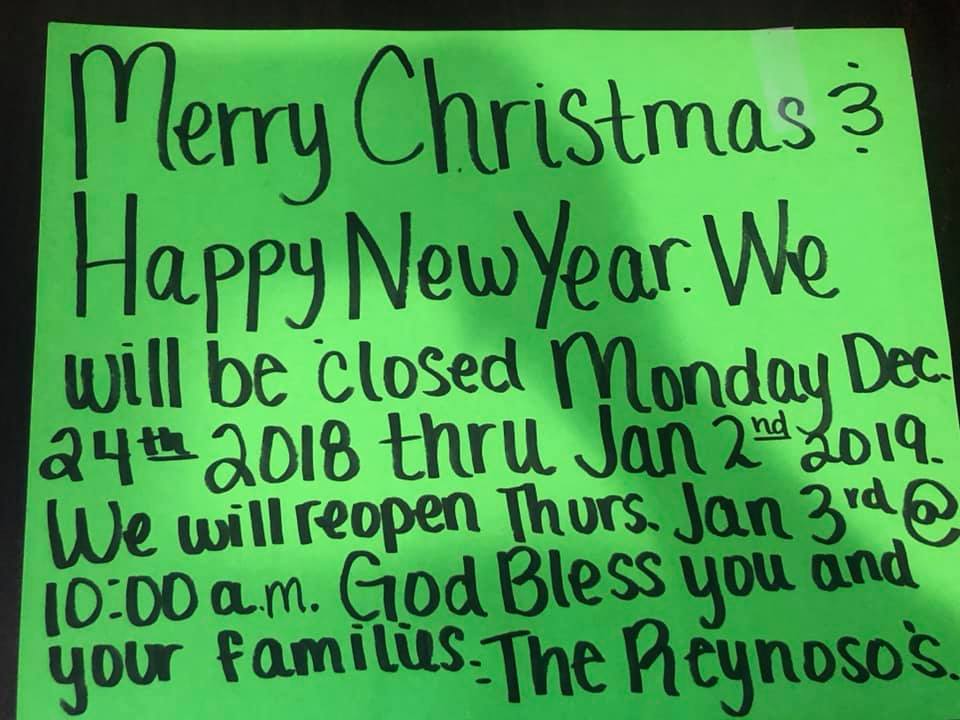 Merry Christmas &
Happy New Year. We
will be closed Monday Dec.
24th 2018 thru Jan 2nd 2019.
We will reopen Thurs. Jan 3rd @
10:00 a.m. God Bless you and
your families. - The Reynoso's.